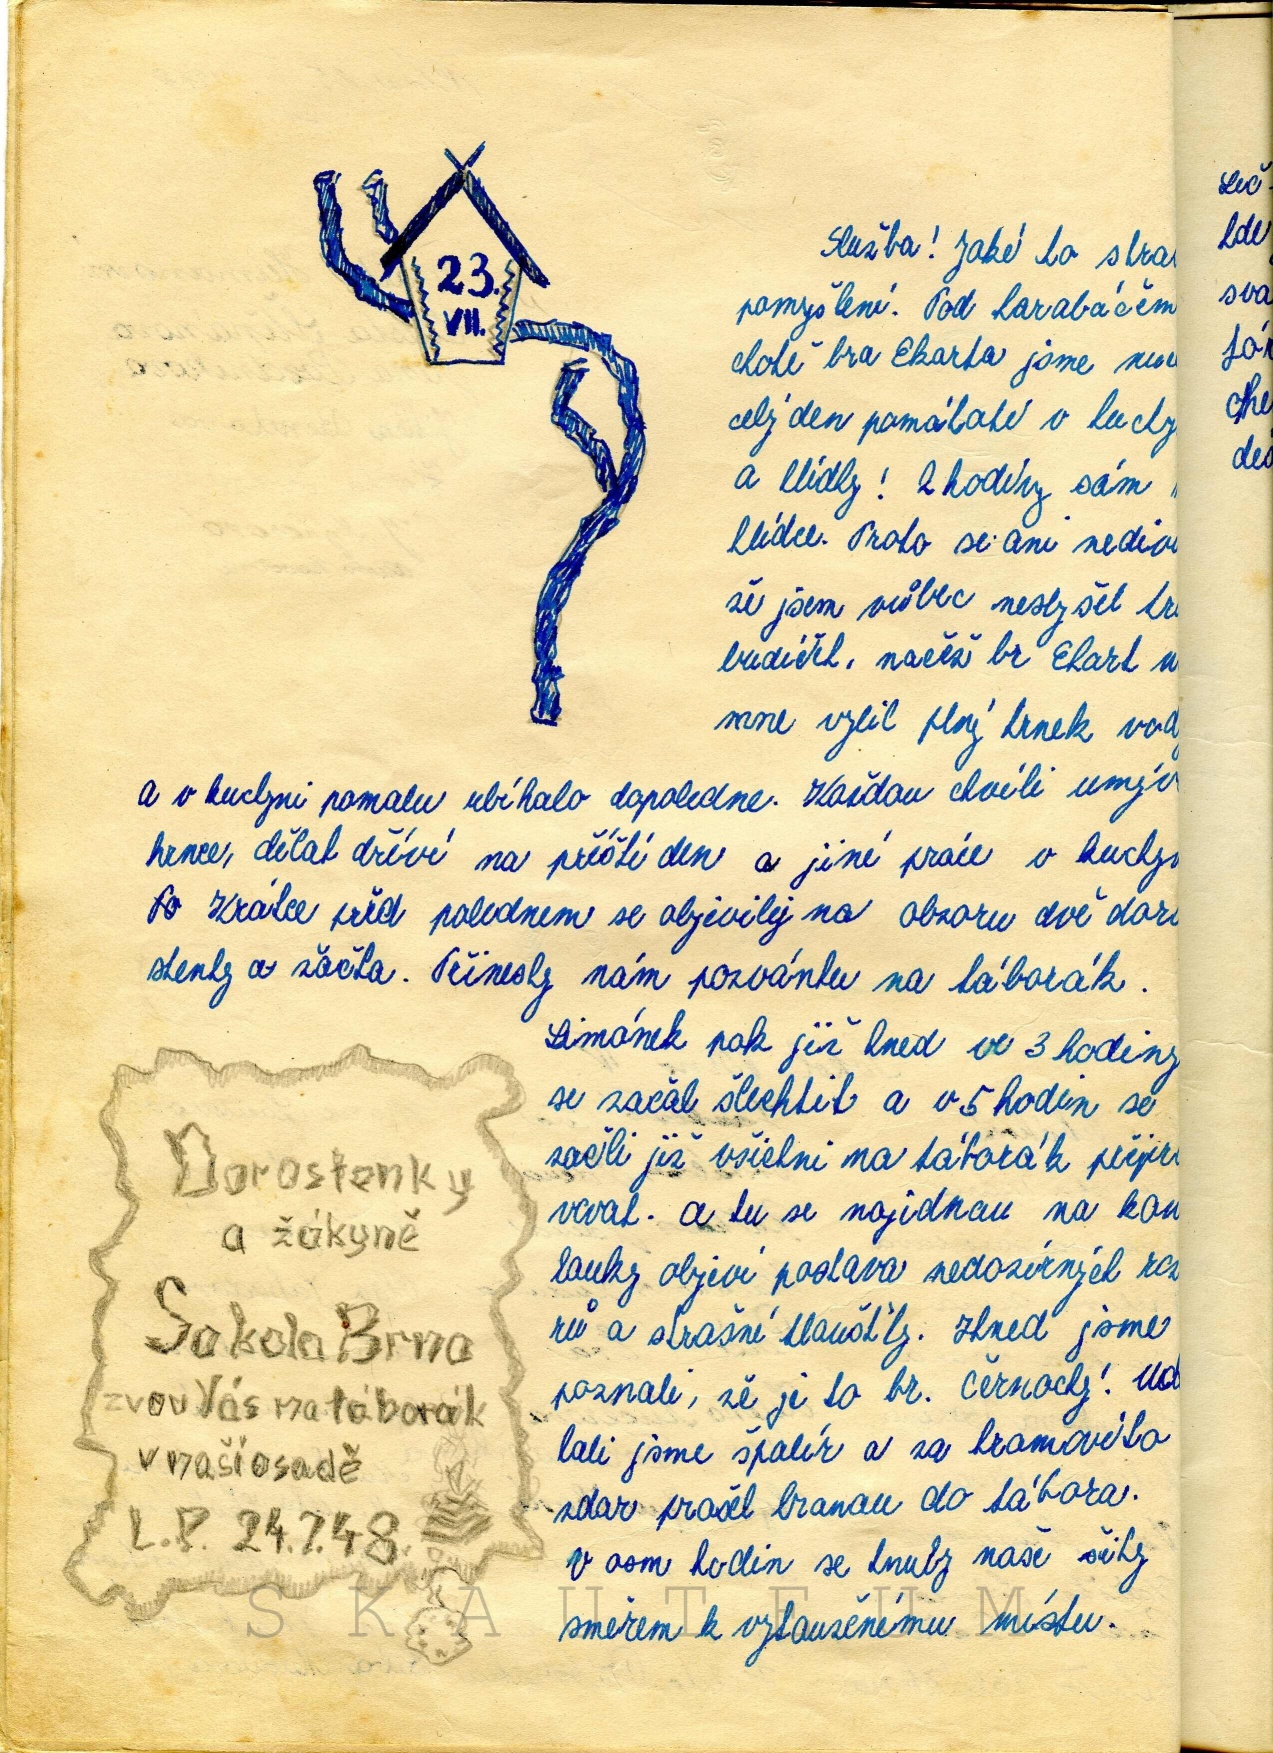 23.
VII.
Služba! Jaké to stra
pomyšlení. Pod karabáčem
choti bra Ekarta jsme
celý den pomáhati v kuchy
a hlídky! 2 hodiny sám
hlídce. Proto se ani nediv
že jsem vůbec neslyšel
budíček, načež br Ekart
mne vylil plný hrnek vod
a v kuchyni pomalu ubíhalo dopoledne. Každou chvíli umýv
hrnce, dělat dříví na příští den a jiné práce v kuchy
Po Krátce před polednem se objevily na obzoru dvě doro
stenky a žačka. Přinesly nám pozvánku na táborák.
Limánek pak již hned ve 3 hodiny
se začal šlechtit a v 5 hodin se
začli již všichni na táborák připra
vovat. a tu se najednou na kon
louky objeví postava nedozírných roz
rů a strašné tloušťky. Ihned jsme
poznali, že je to br. Černocký! Ud
lali jsme špalír a za hromového
zdar prošel branou do tábora.
V osm hodin se hnuly naše šiky
směrem k vytouženému místu.
Dorostenky
a žákyně
Sokola Brna
zvou Vás na táborák
v naší osadě
L.P. 24.7.48.
SKAUTEUM